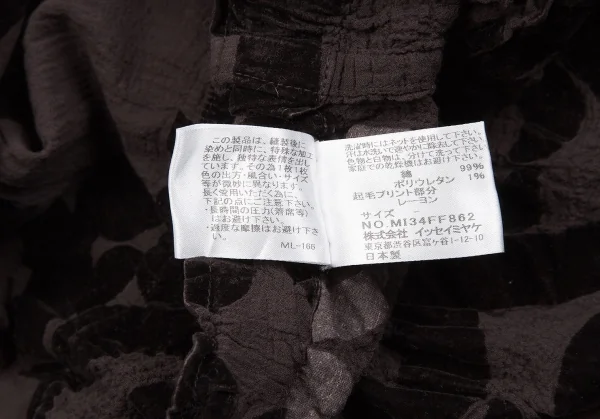 この製品は、縫製後に
染めと同時に、特殊な加工
を施し、独特な表情を出し
ています。その為1枚1枚
色の出方・風合い・サイズ
等が微妙に異なります。
長く愛用いただく為に、
下記の点にご注意下さい。
・長時間の圧力(着席等)
はお避け下さい。
・過度な摩擦はお避け下さ
い。
ML-166
洗濯時にはネットを使用して下さい。
汗は水洗いで速やかに除去して下さい。
色物と白物は、分けて洗って下さい。
家庭での乾燥機はお避け下さい。
綿 99%
ポリウレタン 1%
起毛プリント部分
レーヨン
サイズ -
NO.MI34FF862
株式会社 イッセイミヤケ
東京都渋谷区富ヶ谷1-12-10
日本製